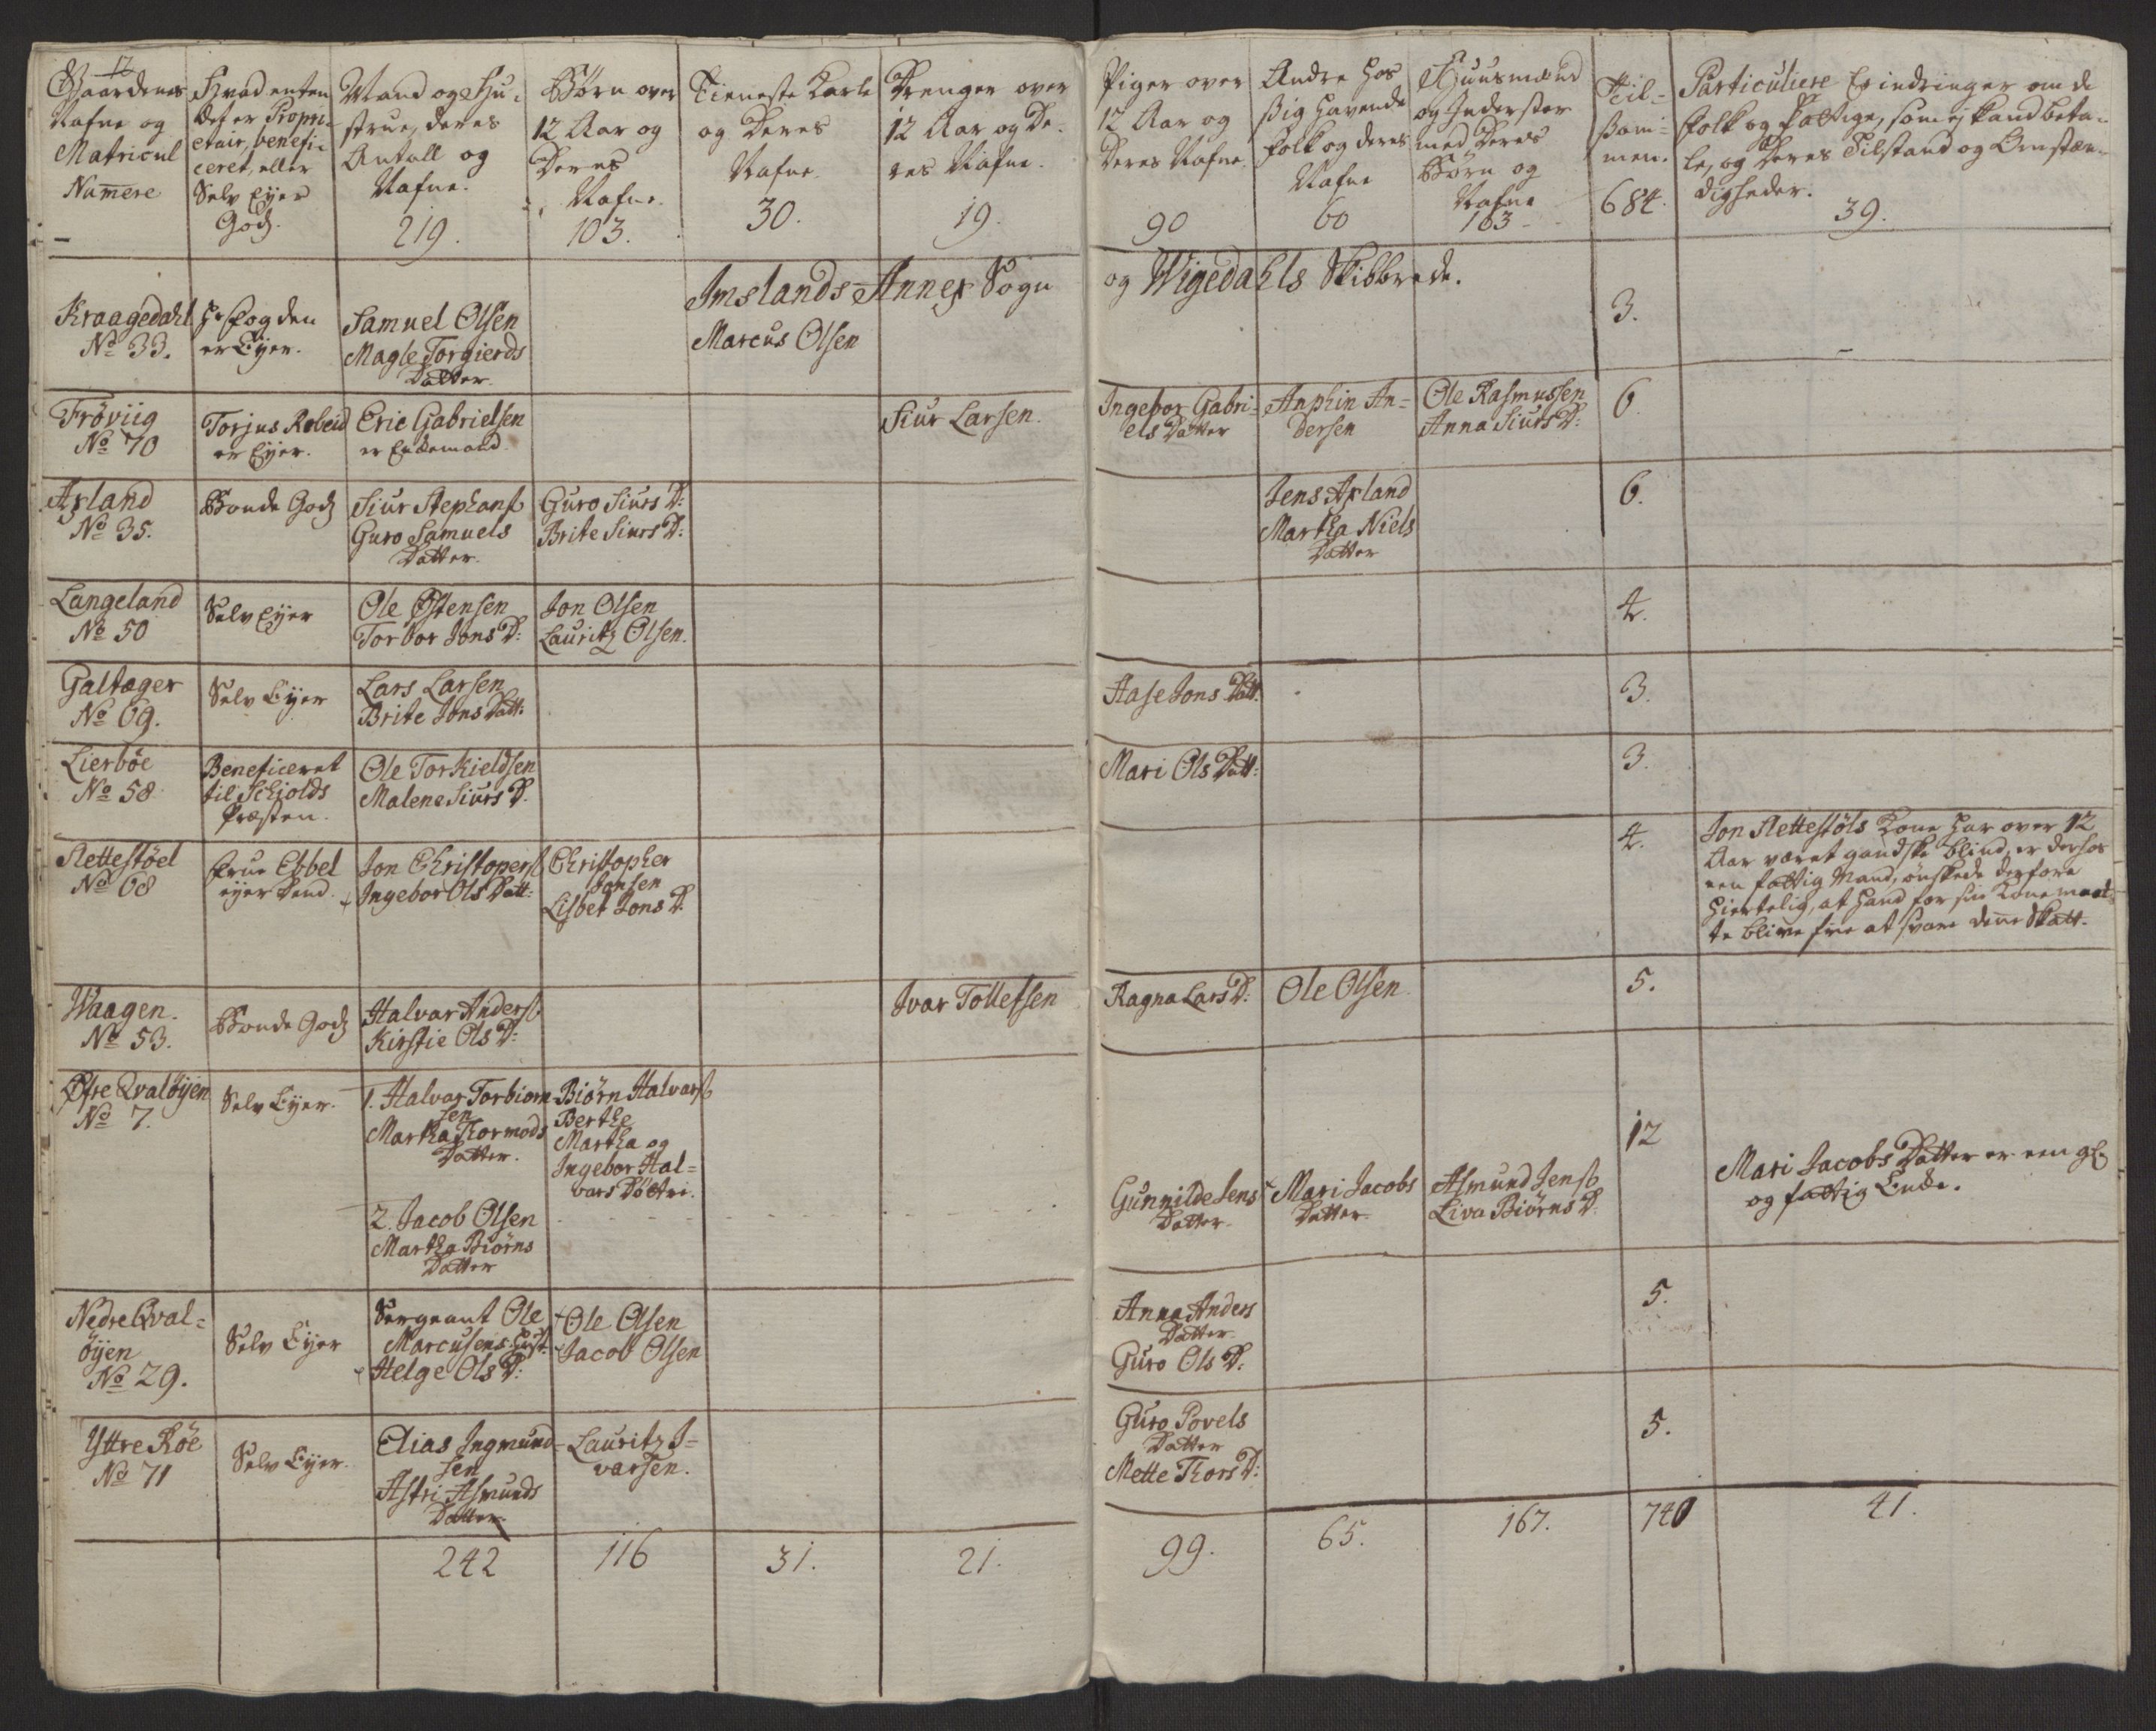 12
Gaardenes
Nafne og
Matricul
Numere
Hvad enten
det er Propri-
etair, benefi-
ceret, eller
Selv Eyer
Godz.
Mand og Hu-
strue, deres
Antall og
Nafne.
219.
Børn over
12 Aar og
Deres
Nafne.
103.
Tieneste Karle
og Deres
Nafne.
30.
Drenger over
12 Aar og De-
res Nafne.
19.
Piger over
12 Aar og
Deres Nafne.
90
Andre hos
sig havende
folk og deres
Nafne
60
Huusmænd
og Inderster
med Deres
Børn og
Nafne
163
Til-
sam-
men.
684.
Particuliere Erindringer om de
folk og fattige, som ej kand beta-
le, og Deres Tilstand og Omstæn-
digheder.
39.
Imslands Annex Sogn og Wigedahls Skibbrede.
Kraagedahl
No 33.
Hr Fogden
er Eyer.
Samuel Olsen
Magle Torgierds
Datter.
Marcus Olsen
3.
Frøviig
No 70
Torjus Røbeid
er Eyer.
Eric Gabrielsen
er Enkemand.
Siur Larsen.
Ingebor Gabri-
els Datter
Anphin An-
dersen
Ole Rasmussen
Anna Siurs D:
6.
Axland
No 35.
Bonde Godz
Siur Stephans.
Guro Samuels
Datter.
Guro Siurs D:
Brite Siurs D:
Jens Axland
Martha Niels
Datter
6.
Langeland
No 50
Selv Eyer
Ole Østensen
Torbor Jons D:
Jon Olsen
Lauritz Olsen.
4.
Galtæger
No 69.
Selv Eyer
Lars Larsen
Brite Jons Datt:
Aase Jons Datt.
3.
Lierbøe
No 58
Beneficeret
til Schiolds
Præsten.
Ole Torkieldsen
Malene Siurs D.
Mari Ols Datt:
3.
Slettestøel
No 68
Frue Ebbel
eyer dend.
Jon Christopers.
Ingebor Ols Datt:
Christopher
Jonsen
Lisbet Jons D.
4.
Jon Slettestøls Kone har over 12
Aar været gandske blind, er derhos
een fattig Mand, ønskede derfore
hiertelig, at hand for sin Kone maat-
te blive frie at svare denne Skatt.
Waagen.
No 53.
Bonde Godz
Halvar Anders.
Kirstie Ols D:
Ivar Tollefsen
Ragna Lars D:
Ole Olsen.
5.
Øfre Qvaløyen
No 7.
Selv Eyer.
1. Halvar Torbiørn-
sen
Martha Thormods
Datter.
Biørn Halvars.
Berthe
Martha og
Ingebor Hal-
vars Døttre.
2. Jacob Olsen
Martha Biørns
Datter
Gunnilde Jens
Datter.
Mari Jacobs
Datter.
Asmund Jens.
Liva Biørns D.
12
Mari Jacobs Datter er een gl.
og fattig Enke.
Nedre Qval-
øyen
No 29.
Selv Eyer
Sergeant Ole
Marcusens Hust.
Helge Ols D:
Ole Olsen
Jacob Olsen
Anna Anders
Datter
Guro Ols D:
5.
Yttre Røe
No 71
Selv Eyer.
Elias Ingmund-
sen
Astri Asmunds
Datter.
Lauritz I-
varsen.
Guro Povels
Datter
Mette Thors D:
5.
242
116
31.
21.
99.
65.
167.
740
41.